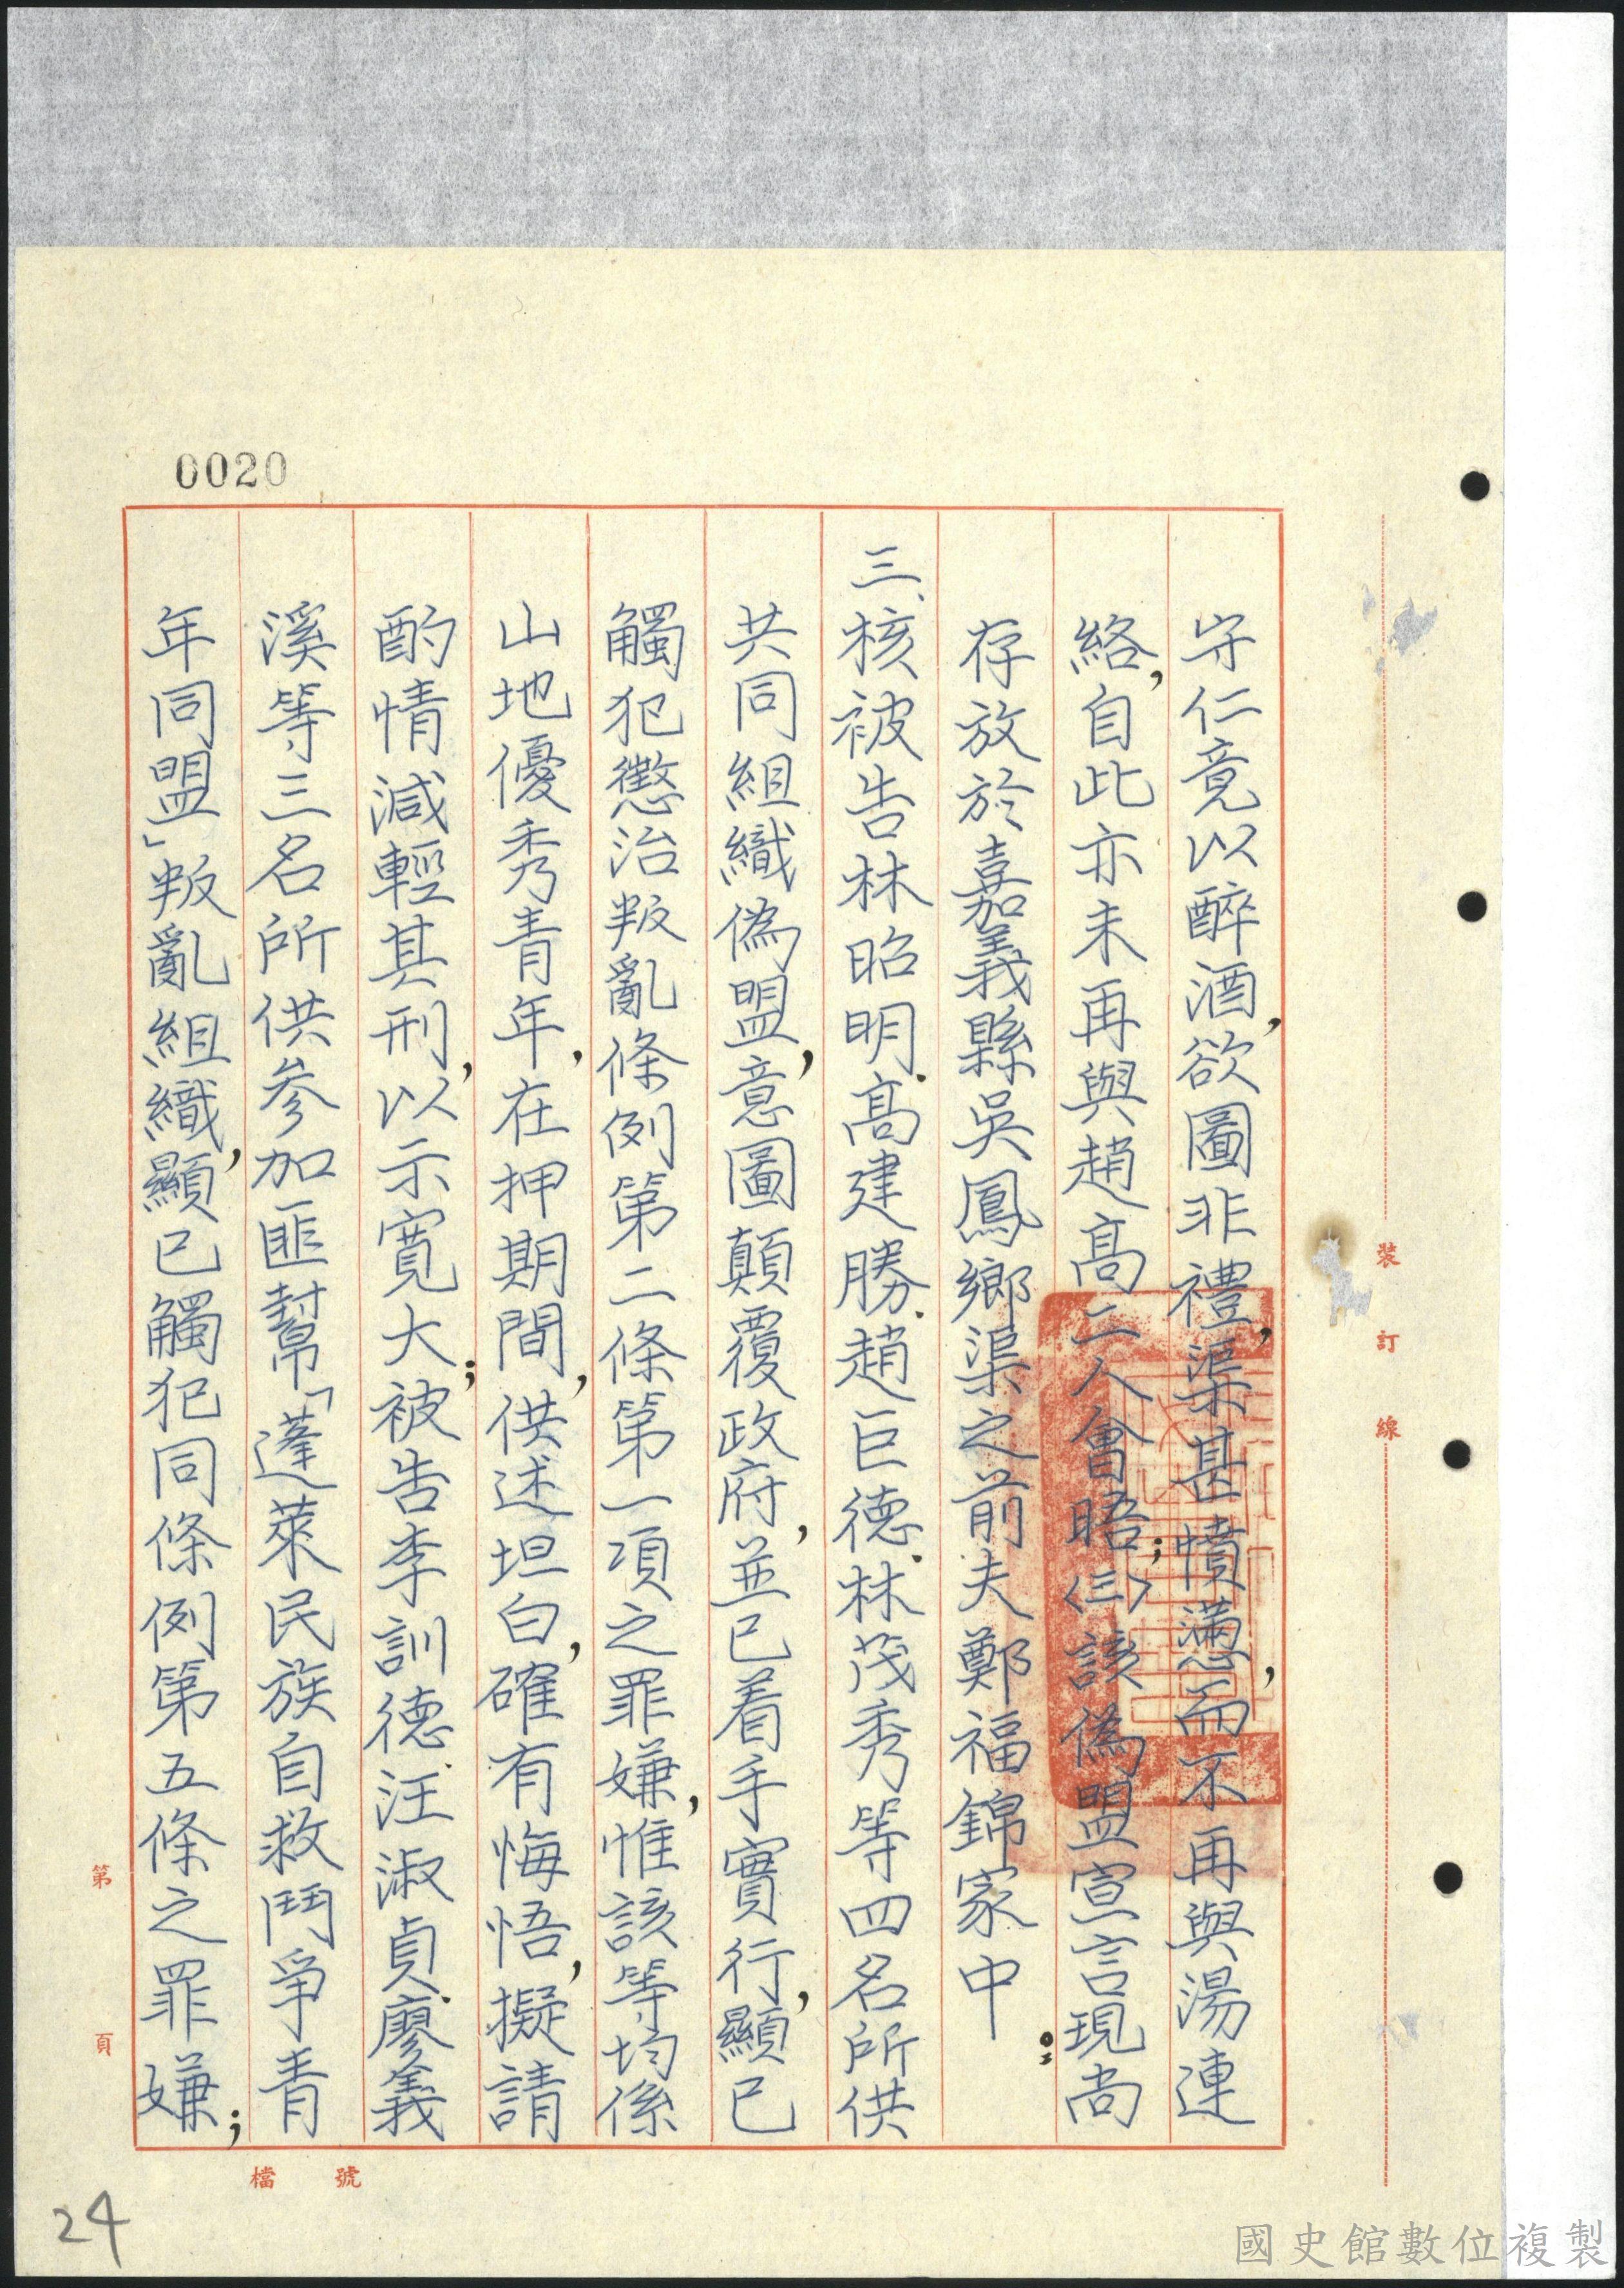 0020
守仁竟以醉酒,欲圖非禮,渠甚憤懣,而不再與湯連
絡,自此亦未再與趙高二人會晤;㈢該偽盟宣言現尚
存放於嘉義縣吳鳳鄉渠之前夫鄭福錦家中。
三、核被告林昭明.高建勝.趙巨德.林茂秀等四名所供
共同組織偽盟,意圖顛覆政府,並已着手實行,顯已
觸犯懲治叛亂條例第二條第一項之罪嫌,惟該等均係
山地優秀青年,在押期間,供述坦白,確有悔悟,擬請
酌情減輕其刑,以示寬大;被告李訓德.汪淑貞.廖義
溪等三名所供參加匪幫「蓬萊民族自救鬥爭青
年同盟」叛亂組織,顯已觸犯同條例第五條之罪嫌;
裝訂線
第 頁
檔 號
24
國史館數位複製